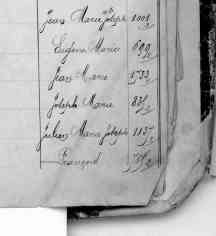 Jean Marie Joseph 1001/2
Eugène Marie 690/2
Jean Marie 1733/2
Joseph Marie 83/2
Julien Marie Joseph 1137/2
François